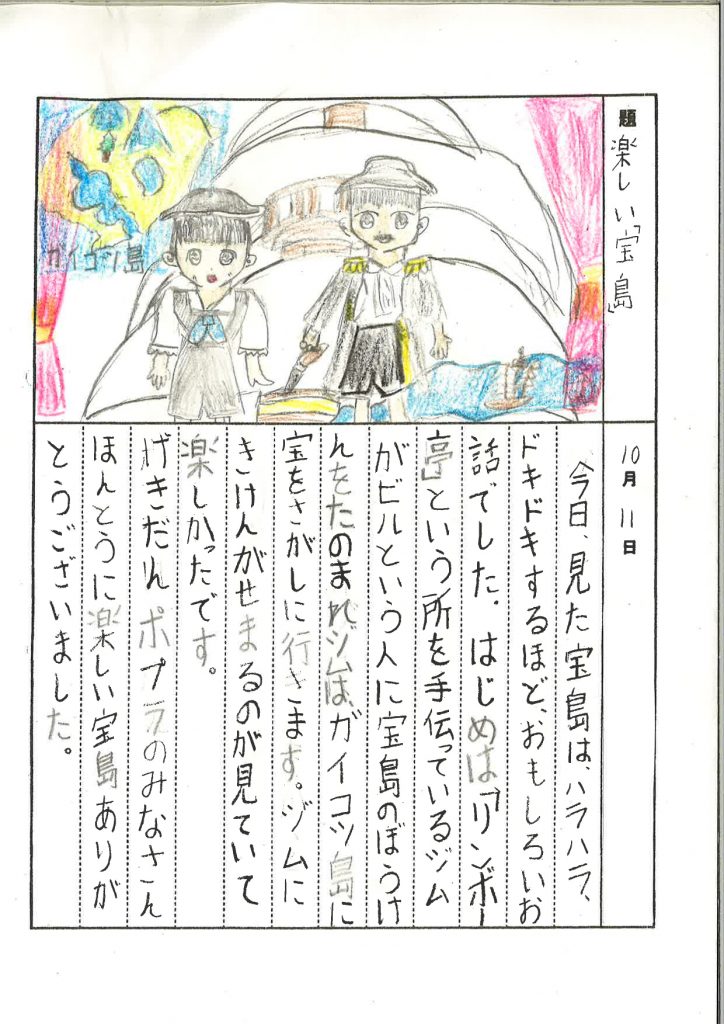 題 楽しい「宝島」
10月11日
ガイコツ島
今日、見た宝島は、ハラハラ、
ドキドキするほど、おもしろいお
話でした。はじめは「リンボー
亭」という所を手伝っているジム
がビルという人に宝島のぼうけ
んをたのまれジムは、ガイコツ島に
宝をさがしに行きます。ジムに
きけんがせまるのが見ていて
楽しかったです。
げきだん ポプラのみなさん
ほんとうに楽しい宝島ありが
とうございました。